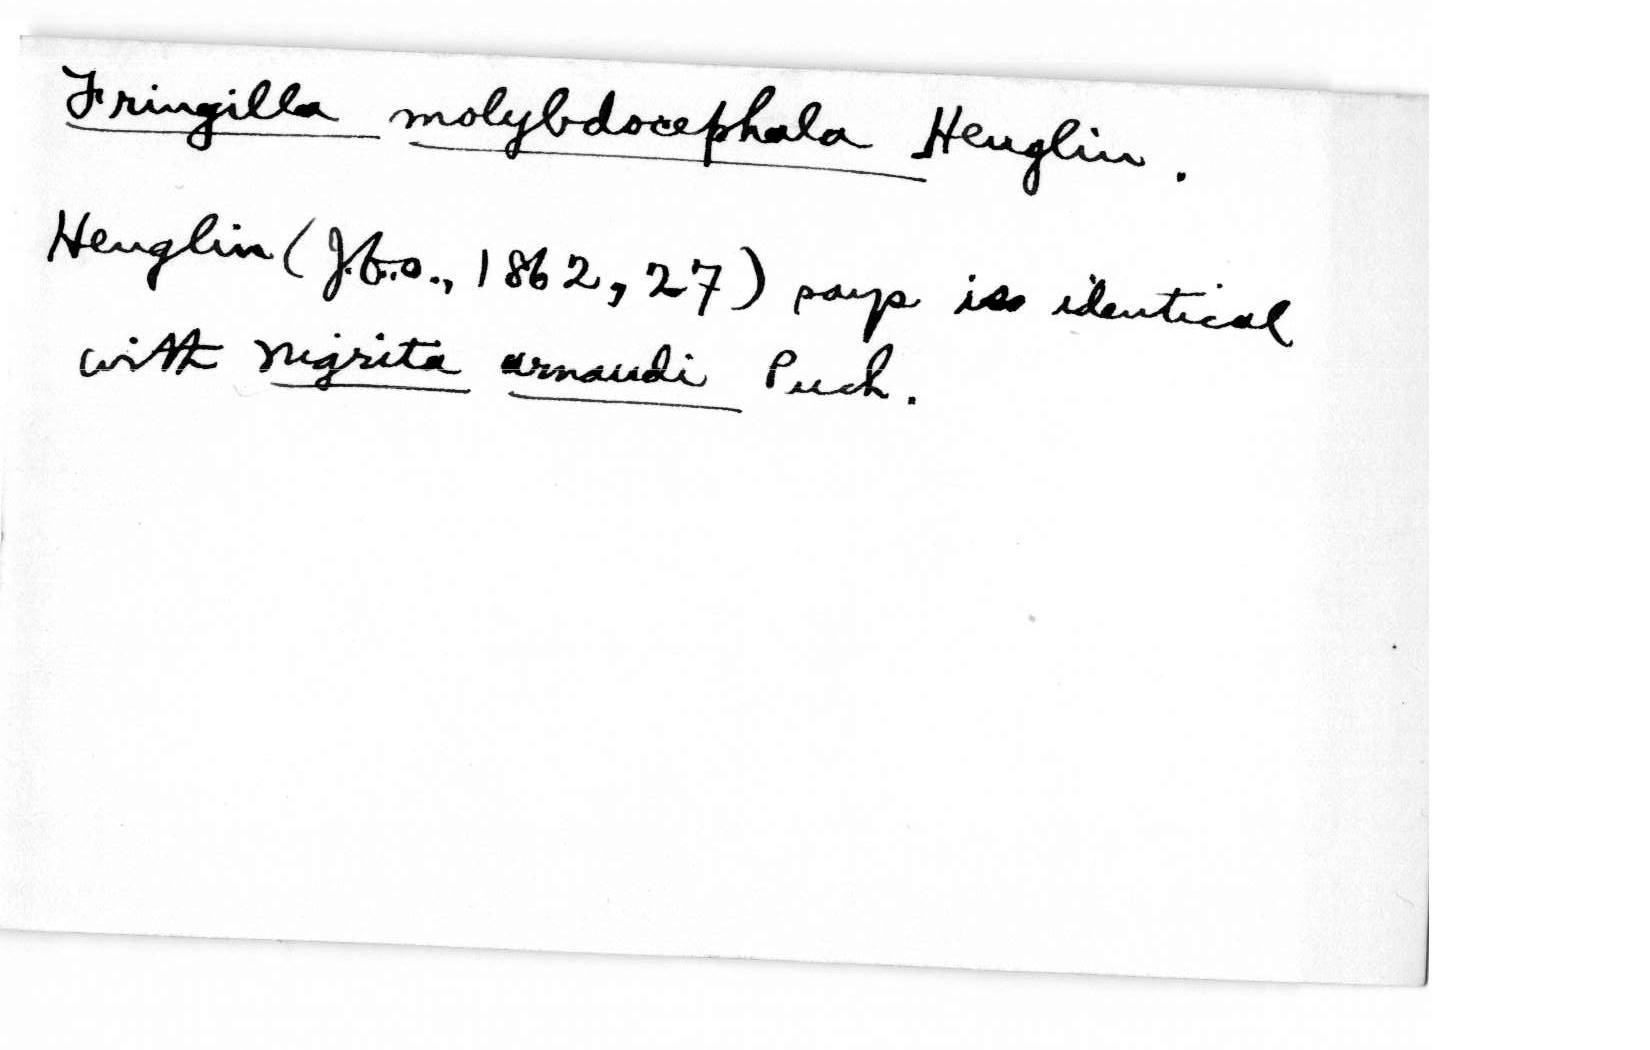 Fringilla molybdocephala Heuglin.
Heuglin (J.f.o., 1862, 27) says is identical
with Nigrita arnaudi Puch.